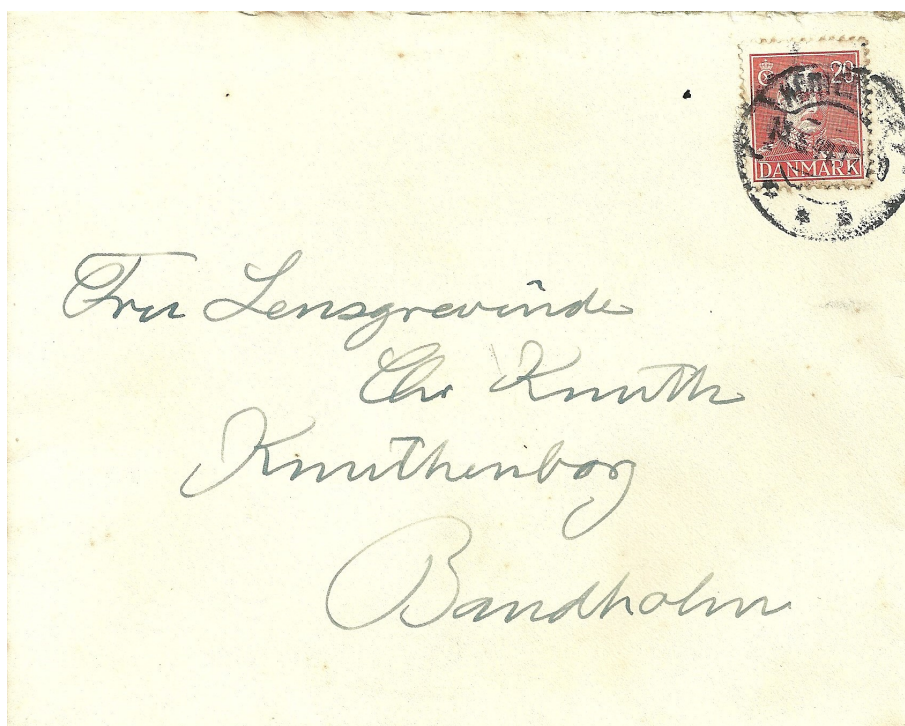 20
DANMARK
Fru Lensgrevinde
Chr Knuth
Knuthenborg
Bandholm